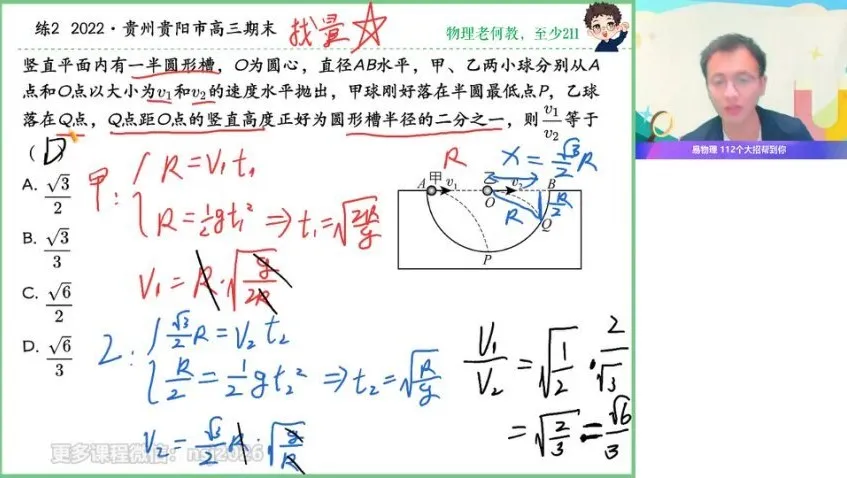 练2 2022·贵州贵阳市高三期末
找量☆
物理老何教，至少211
竖直平面内有一半圆形槽，O为圆心，直径AB水平，甲、乙两小球分别从A
点和O点以大小为v₁和v₂的速度水平抛出，甲球刚好落在半圆最低点P，乙球
落在Q点，Q点距O点的竖直高度正好为圆形槽半径的二分之一，则 v₁/v₂ 等于
( D )
A. √3/2
B. √3/3
C. √6/2
D. √6/3
甲：
R = V₁t₁
R = 1/2 gt₁² ⇒ t₁ = √(2R/g)
V₁ = R·√(g/2R)
2：
√3/2 R = V₂t₂
R/2 = 1/2 gt₂² ⇒ t₂ = √(R/g)
V₂ = √3/2 R·√(g/R)
R
x = √3/2 R
A 甲 v₁ 乙 v₂ B
O R R/2
Q
P
V₁/V₂ = √(1/2) · 2/√3
= √(2/3) = √6/3
易物理 112个大招帮到你
更多课程微信：nsj2026